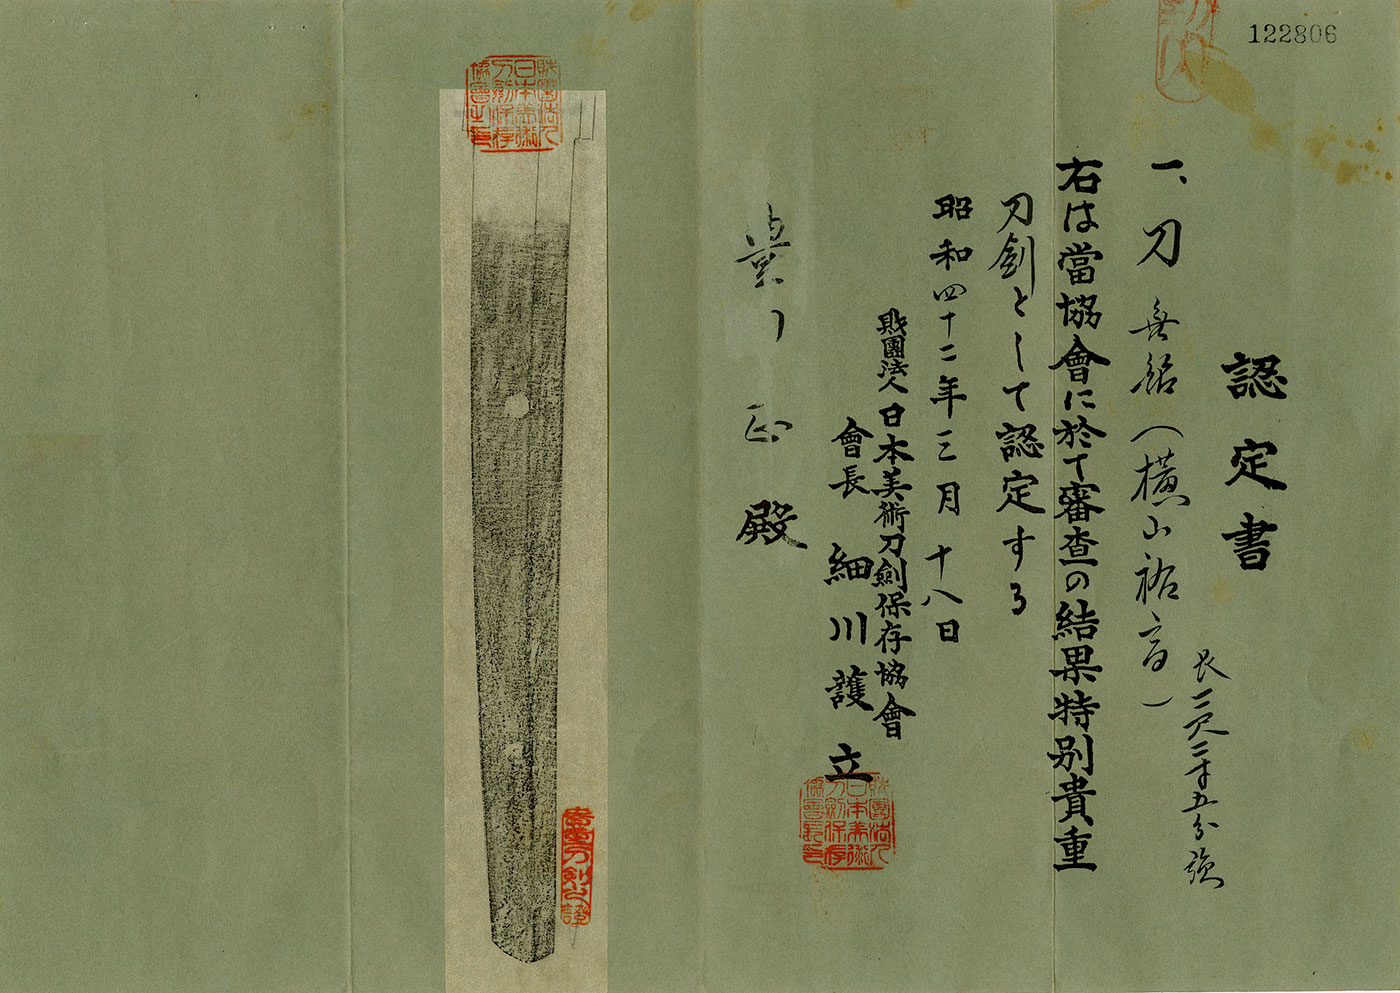 122806
認定書
一、刀 無銘(横山祐高)
長二尺二寸五分強
右は當協會に於て審査の結果特別貴重
刀劍として認定する
昭和四十二年三月十八日
財團法人日本美術刀劍保存協會
會長 細川護立
正殿
財團法人日本美術刀劍保存協會之印
財團法人日本美術刀劍保存協會長印
貴重刀剣之證